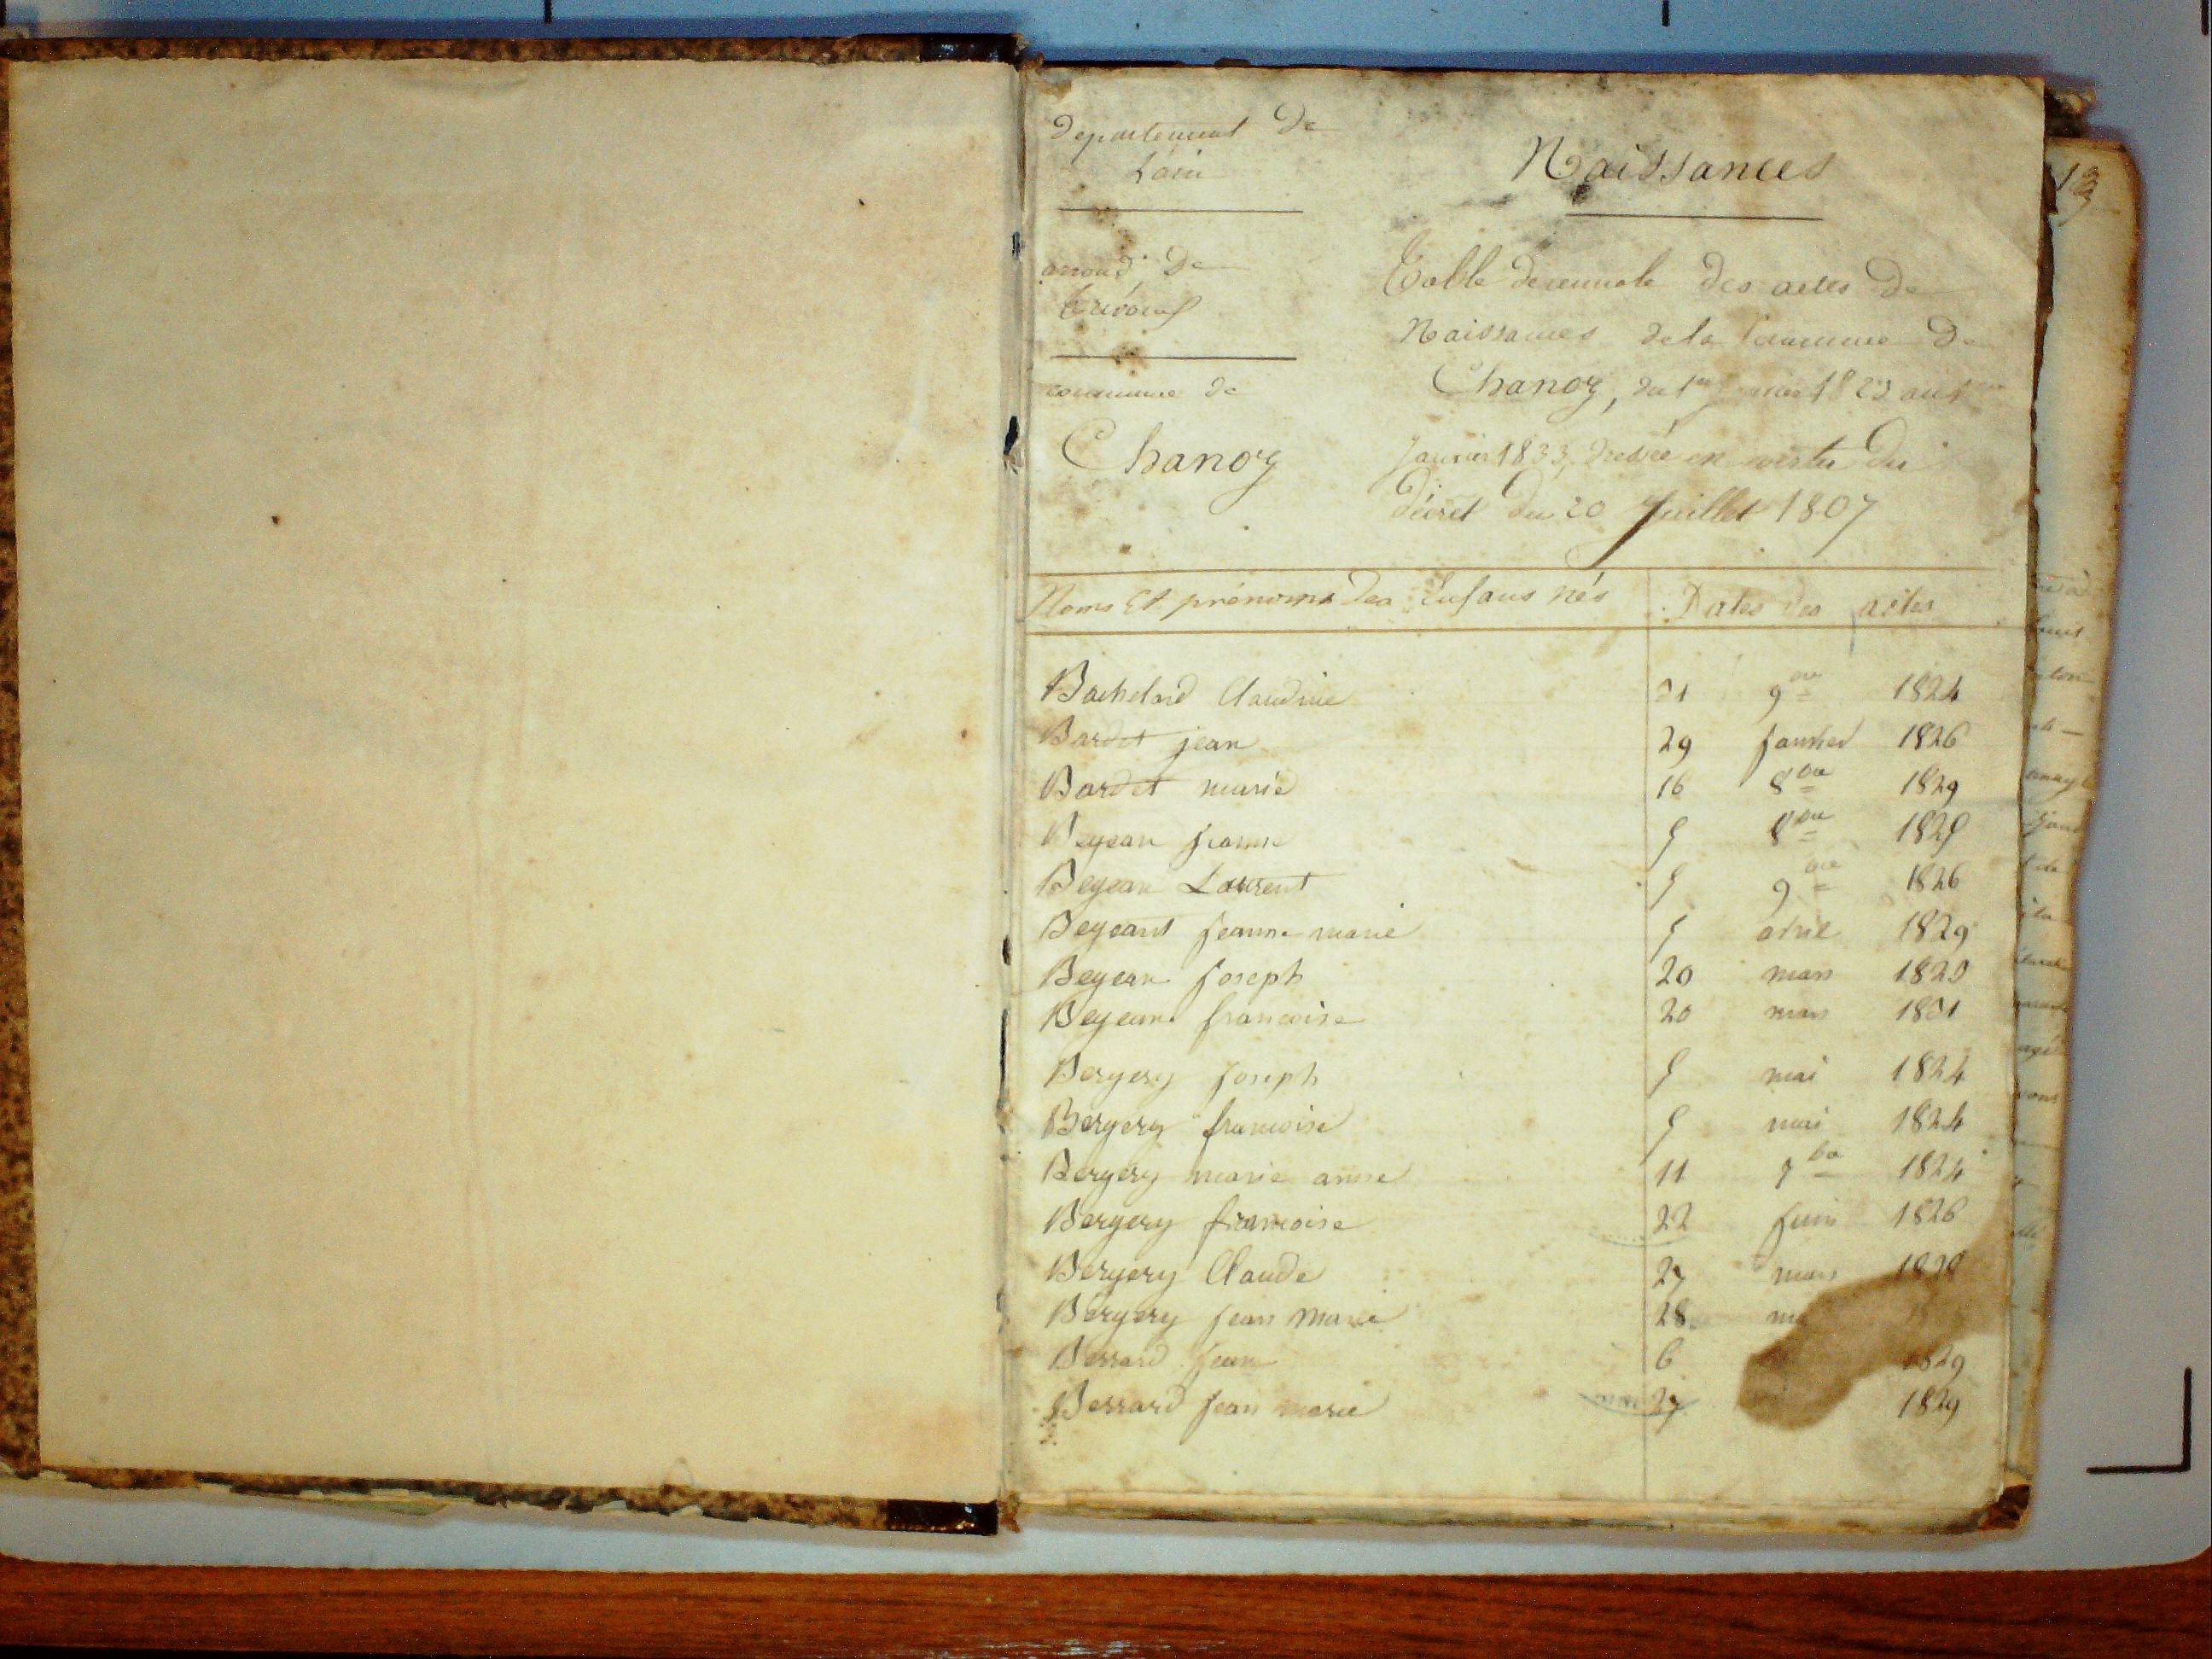 département de
L'ain
arrond.t de
Trévoux
commune de
Chanoz
Naissances
Table decennale des actes de
Naissances de la Commune de
Chanoz, du 1er janvier 1823 au 1er
Janvier 1833, dressée en vertu du
décret du 20 Juillet 1807
Noms Et prénoms des Enfans nés Dates des actes
Bachelard Claudine 21 9bre 1824
Bardet jean 29 janvier 1826
Bardet marie 16 8bre 1829
Bejean jeanne 5 8bre
Bejean Laurent 5 9bre 1826
Bejeant jeanne marie 5 avril 1829
Bejean joseph 20 mars
Bejean francoise 20 mars 1831
Bergery joseph 5 mai 1824
Bergery francoise 5 mai 1824
Bergery marie anne 11 1824
Bergery francoise 22 juin 1826
Bergery Claude 27 mars 1828
Bergery jean marie 28
Bessard jean 6 1829
Bessard jean marie 27 1829